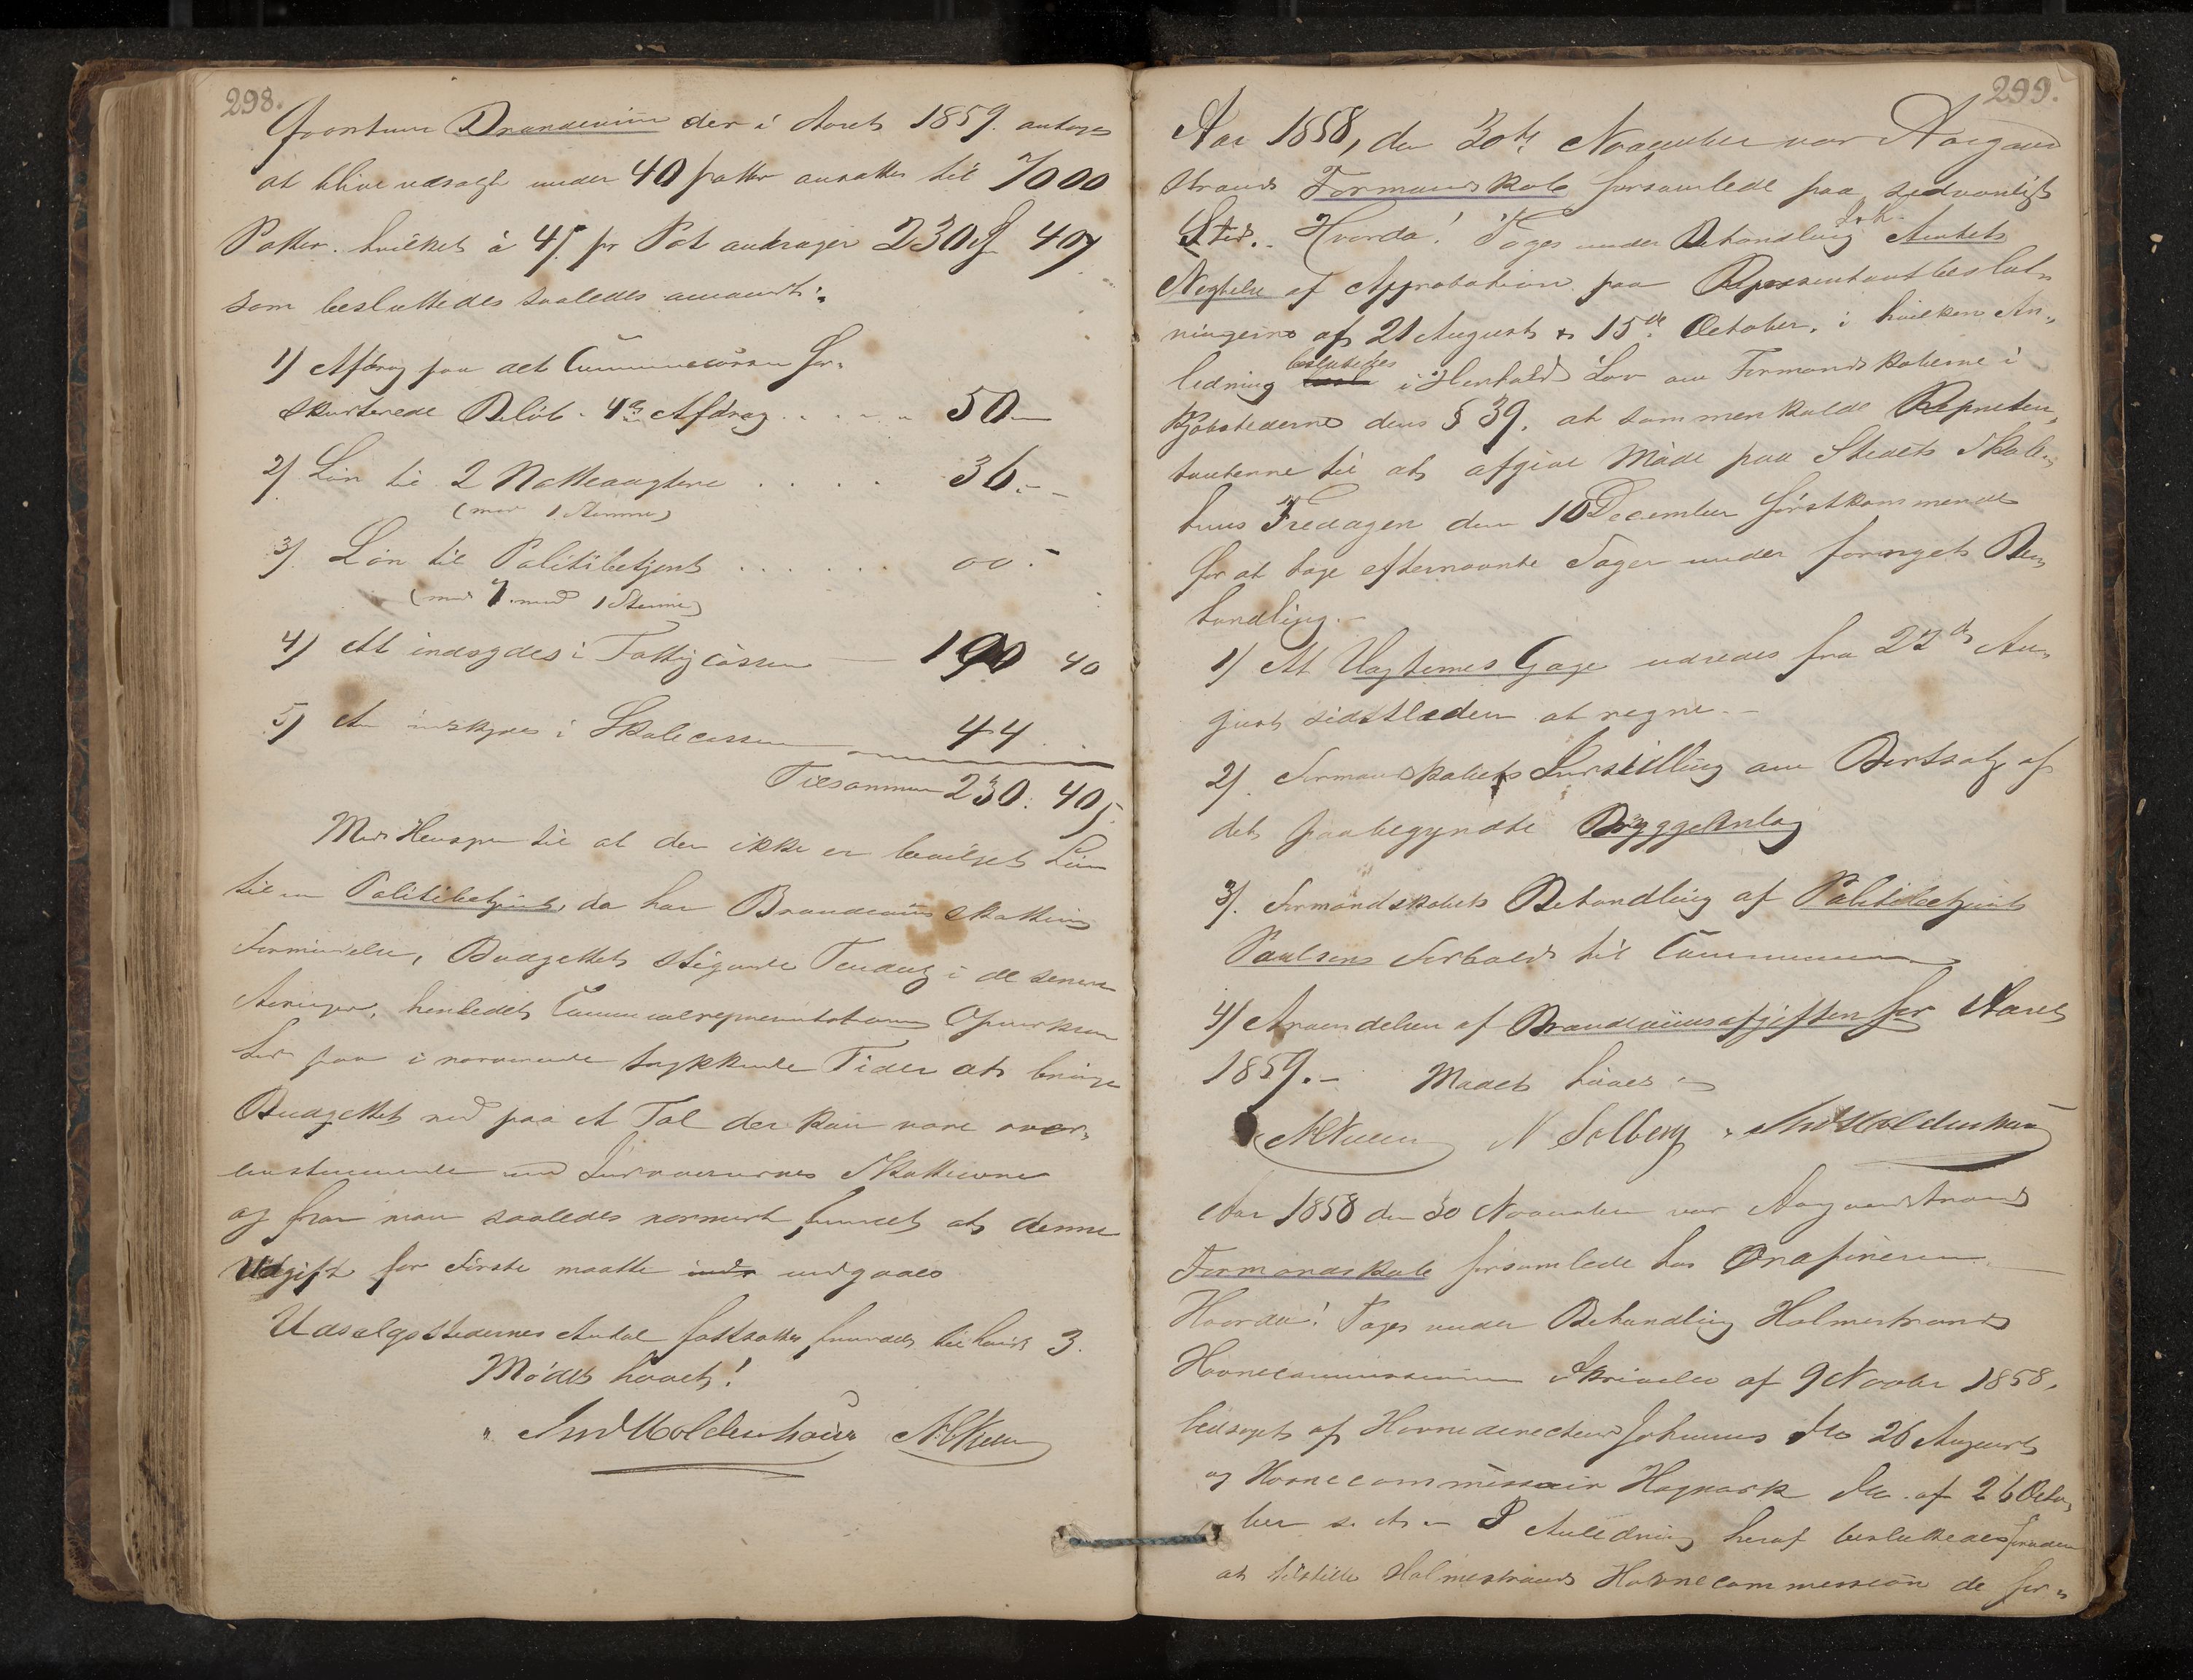 298.
Qvantum Brændeviin der i Aaret 1859. antages
at blive udsolgt under 40 potter ansattes til 7000
Potter. hvilket à 4 β. pr Pot andrager 230 40
som besluttedes saaledes anvendt:
1) Afdrag paa det Communecassen for-
skutterede Beløb. 4de Afdrag . . . . . 50 –
2) Løn til 2 Nattevægtere . . . . 36. –
(mod 1 Stemme)
3) Løn til Politibetjent . . . . . . 00. –
(mod 1 Stemme)
4) At indskydes i Fattigcassen — 190 40
5) At indskydes i Skolecassen — 44
Tilsammen 230. 40 β.
Med Hensyn til at der ikke er bevilget Løn
til en Politibetjent, da har Brændeviinsskattens
Formindelse, Budgettets stigende Tendents i de senere
Aaringer, henledet Communerepræsentationens Opmærksom
hed paa i nærværende trykkende Tider at bringe
Budgettet ned paa et Tal der kan være over-
eensstemmende med Indvaanernes Skatteevne
og har man saaledes nærmest fundet at denne
Udgift for Første maatte undgaaes
Udsalgsstedernes Antal fastsattes fremdeles til 3.
Mødet hævet!
299.
Aar 1858, den 30te November var Aasgaard
strands Formandskab forsamlede paa sedvanligt
Sted. Hvorda! Toges under Behandling Amtets
Negtelse af Approbation paa Repræsentantbeslut-
ningerne af 21 August & 15de October, i hvilken An-
ledning besluttedes i Henhold Lov om Formandskaberne i
Kjøbstæderne dens § 39. at sammenkalde Repræsen-
tanterne til at afgive Møde paa Stedets Skole-
huus Fredagen den 10 December førstkommende
for at tage efternævnte Sager under fornyet Be-
handling. –
1) At Vagternes Gage udredes fra 22de Au-
gust sidstleden at regne. –
2) Formandskabets Indstilling om Bortsalg af
det paabegyndte Bryggeanlæg
3) Formandskabets Behandling af Politibetjent
Paulsens Forhold til Communen
4) Anvendelsen af Brændeviinsafgiften for Aaret
1859. – Mødet hævet
N Solberg
Aar 1858 den 30 November var Aasgaardstrands
Formandskab forsamlede hos Ordføreren
Hvorda! Toges under Behandling Holmestrands
Havnecommissions Skrivelse af 9 Novbr 1858,
ledsaget af Havnedirecteur Johnsens do 26 August
og Havnecommissair do af 26 Octo-
ber s. A. – I Anledning heraf besluttedes
at tilstille Holmestrands Havnecommission de for-